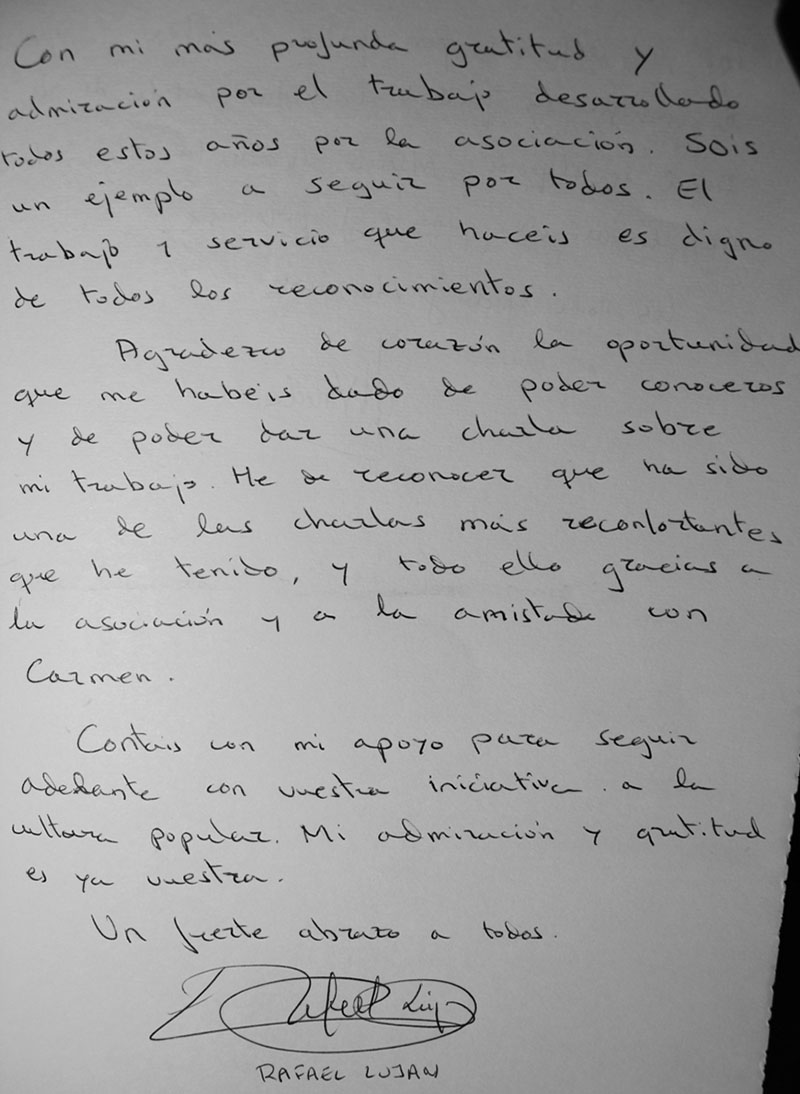 Con mi más profunda gratitud y
admiración por el trabajo desarrollado
todos estos años por la asociación. Sois
un ejemplo a seguir por todos. El
trabajo y servicio que haceis es digno
de todos los reconocimientos.
Agradezco de corazón la oportunidad
que me habéis dado de poder conoceros
y de poder dar una charla sobre
mi trabajo. He de reconocer que ha sido
una de las charlas más reconfortantes
que he tenido, y todo ello gracias a
la asociación y a la amistad con
Carmen.
Contais con mi apoyo para seguir
adelante con vuestra iniciativa a la
cultura popular. Mi admiración y gratitud
es ya vuestra.
Un fuerte abrazo a todos.
Rafael Luján
RAFAEL LUJAN